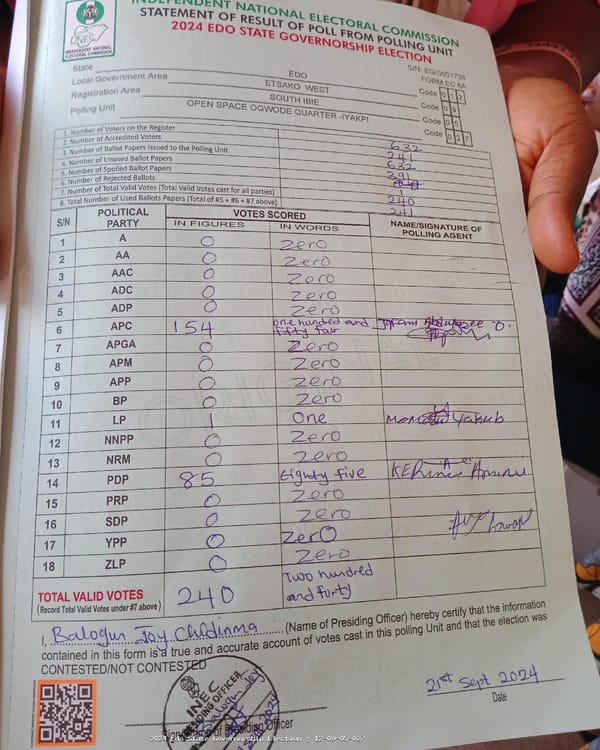 INDEPENDENT NATIONAL ELECTORAL COMMISSION
STATEMENT OF RESULT OF POLL FROM POLLING UNIT
2024 EDO STATE GOVERNORSHIP ELECTION
INEC
INDEPENDENT NATIONAL ELECTORAL COMMISSION
S/N: EG/0001735
FORM EC 8A
State EDO Code 0 1 2
Local Government Area ETSAKO WEST Code 0 9
Registration Area SOUTH IBIE Code 0 5
Polling Unit OPEN SPACE OGWODE QUARTER -IYAKPI Code 0 2 7
1. Number of Voters on the Register 632
2. Number of Accredited Voters 241
3. Number of Ballot Papers Issued to the Polling Unit 632
4. Number of Unused Ballot Papers 391
5. Number of Spoiled Ballot Papers
6. Number of Rejected Ballots 1
7. Number of Total Valid Votes (Total Valid Votes cast for all parties) 240
8. Total Number of Used Ballots Papers (Total of #5 + #6 + #7 above) 241
S/N POLITICAL PARTY VOTES SCORED NAME/SIGNATURE OF POLLING AGENT
IN FIGURES IN WORDS
1 A 0 Zero
2 AA 0 Zero
3 AAC 0 Zero
4 ADC 0 Zero
5 ADP 0 Zero
6 APC 154 one hundred and fifty four
7 APGA 0 Zero
8 APM 0 Zero
9 APP 0 Zero
10 BP 0 Zero
11 LP 1 One Yakub
12 NNPP 0 Zero
13 NRM 0 Zero
14 PDP 85 Eighty five
15 PRP 0 Zero
16 SDP 0 Zero
17 YPP 0 Zero
18 ZLP 0 Zero
TOTAL VALID VOTES 240 Two hundred and forty
(Record Total Valid Votes under #7 above)
I, Balogun Joy Chidinma (Name of Presiding Officer) hereby certify that the information
contained in this form is a true and accurate account of votes cast in this polling Unit and that the election was
CONTESTED/NOT CONTESTED
INEC
PRESIDING OFFICER
21st Sept 2024
Date
Presiding Officer
2024 Edo State Governorship Election : 12-09-05-027
ORIGINAL